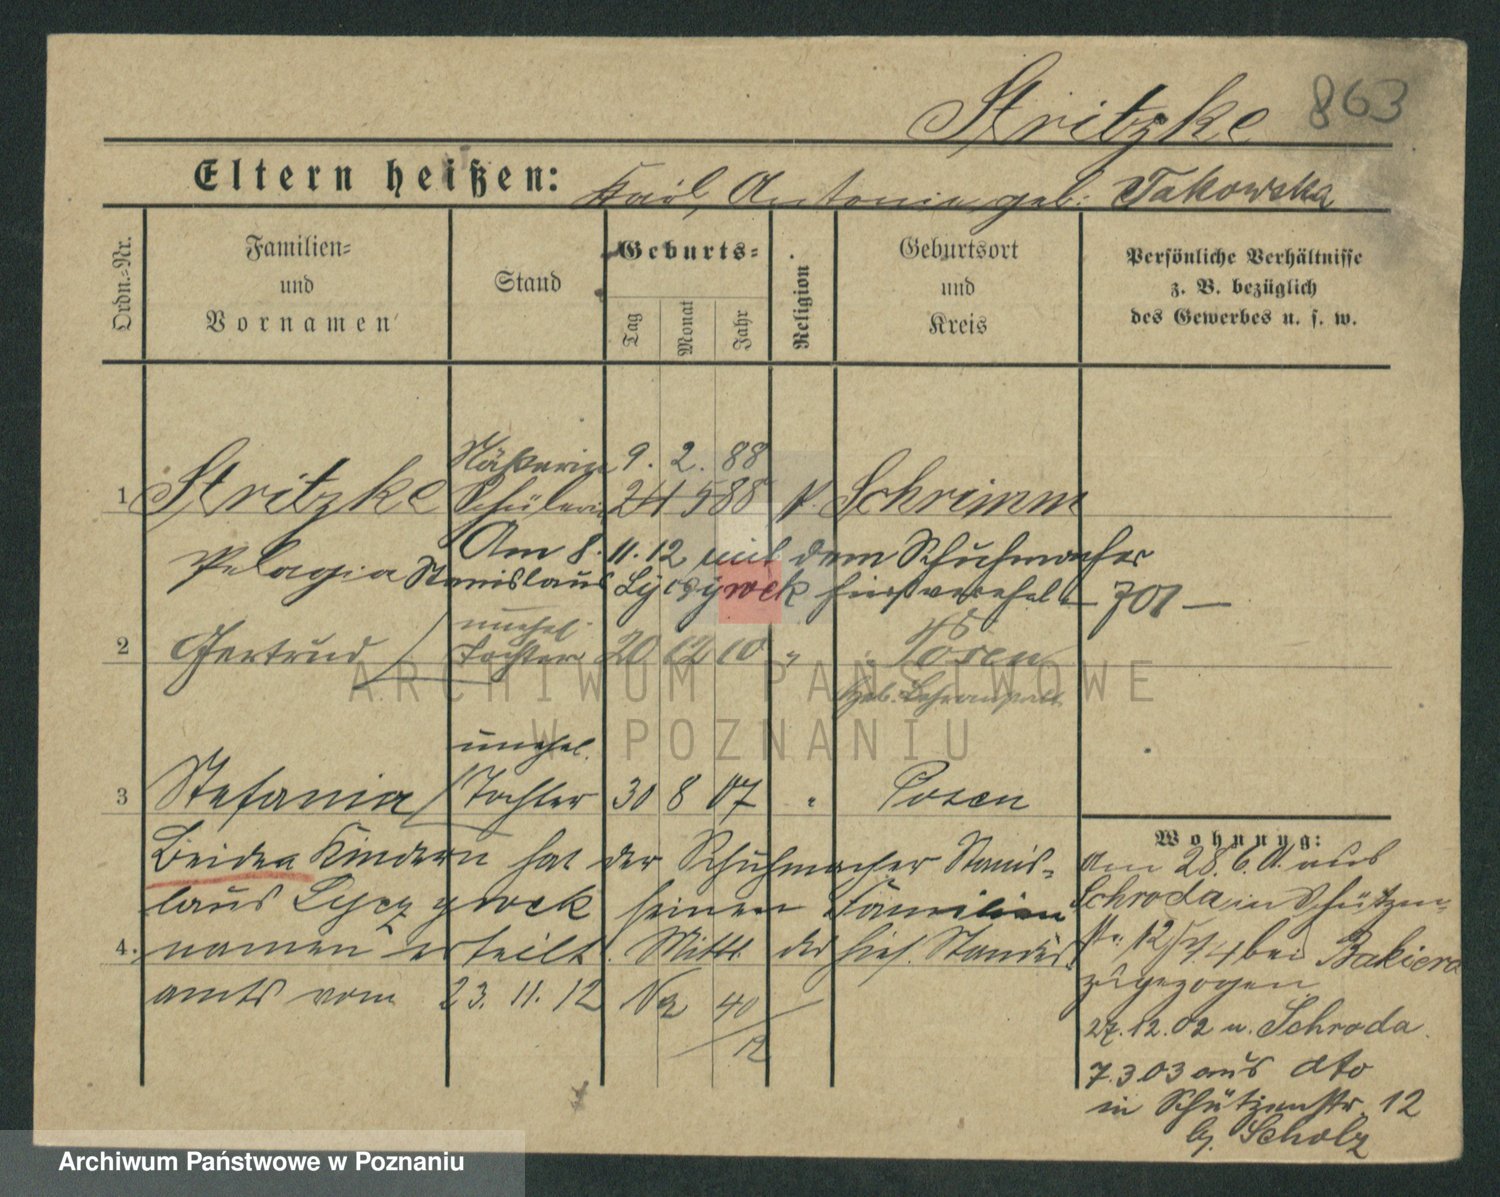 863
Stritzke
Eltern heißen: Karl, Antonie geb. Takowska
Ordn.-Nr.
Familien-
und
Vornamen
Stand
Geburts-
Tag
Monat
Jahr
Religion
Geburtsort
und
Kreis
Persönliche Verhältnisse
z. B. bezüglich
des Gewerbes u. s. w.
Näherin 9. 2. 88
1 Stritzke Schülerin 24 5 88 k. Schrimm
Pelagia
Am 8. 11. 12 mit dem Schuhmacher
Stanislaus hier verehel. — 701 —
unehel.
2 Gertrud Tochter 20 12 10 " Posen
unehel.
3 Stefania Tochter 30 8 07 " Posen
Beiden Kindern hat der Schuhmacher Stanis-
laus seinen Familien
4. namen erteilt. Mittl. des hies. Standes
amts vom 23. 11. 12 No 40
12
Wohnung:
Am 28. 6. 01. aus
Schroda in Schützen-
str. 12 bei Bakiera
zugezogen
27. 12. 02 n. Schroda.
7. 3. 03 aus dto
in Schützenstr. 12
b. Scholz
ARCHIWUM PAŃSTWOWE
W POZNANIU
Archiwum Państwowe w Poznaniu